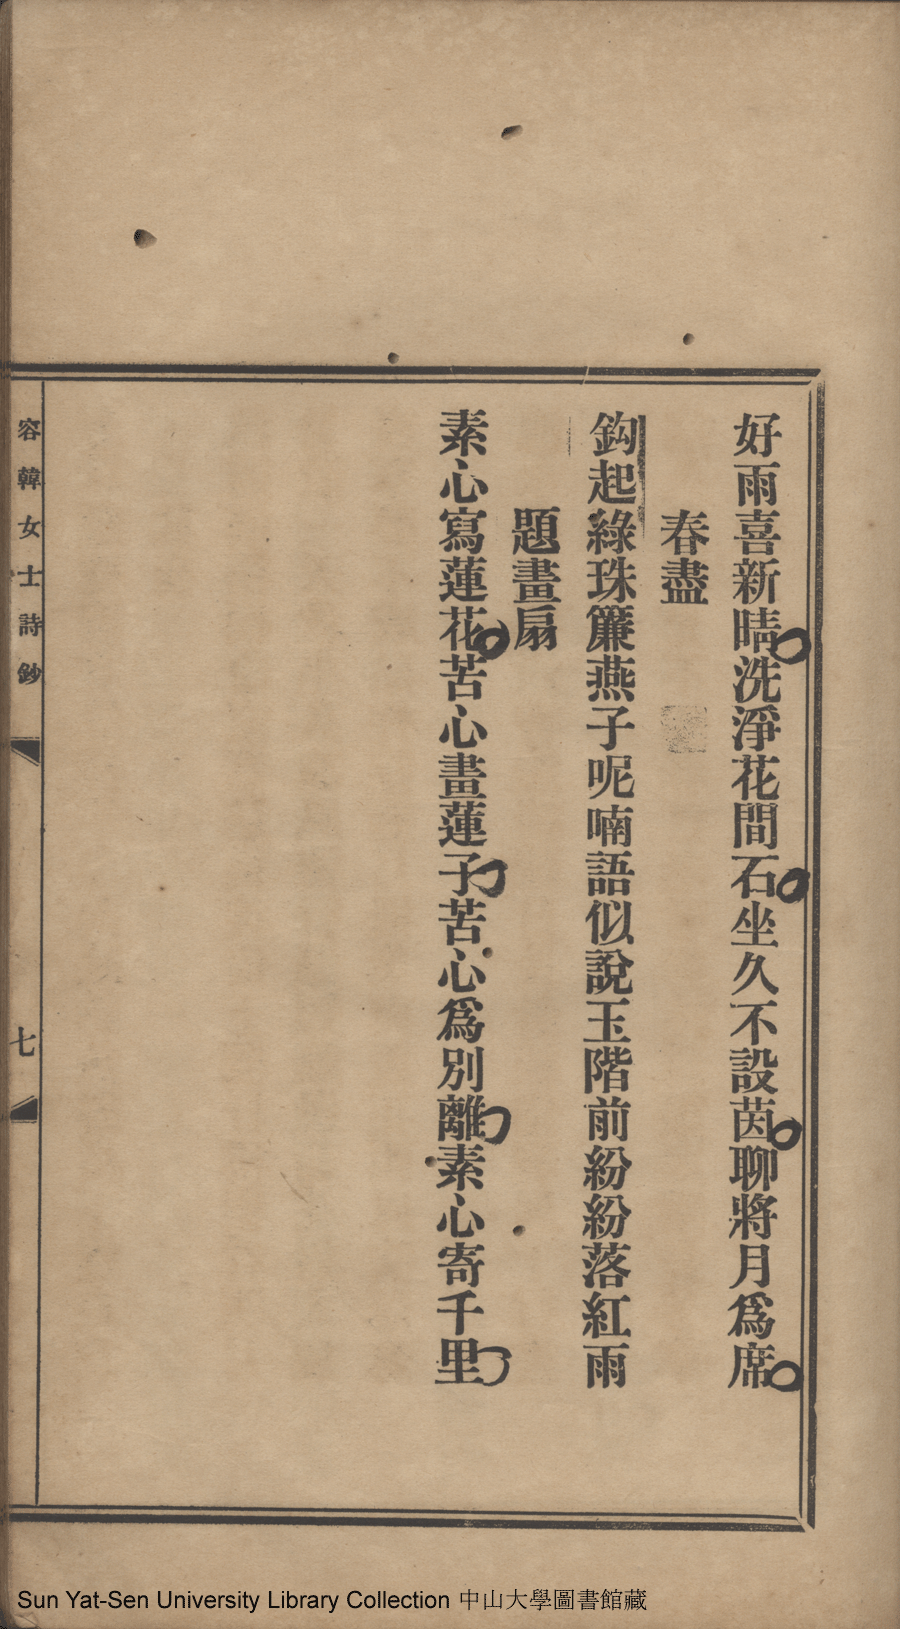 好雨喜新晴洗淨花間石坐久不設茵聊將月爲席
春盡
鈎起綠珠簾燕子呢喃語似說玉階前紛紛落紅雨
題畫扇
素心寫蓮花苦心畫蓮子苦心爲別離素心寄千里
容韓女士詩鈔
七
Sun Yat-Sen University Library Collection 中山大學圖書館藏